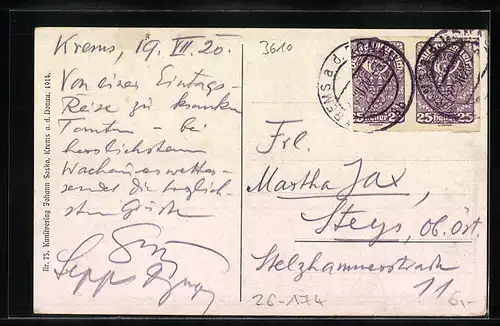 Krems, 19. VII. 20.
Von einer Eintags-
Reise zu kranken
Tanten – bei
herrlichstem
Wachauerwetter
sendet die herzlich-
sten Grüße
Sepp
Nr. 75. Kunstverlag Johann Saska, Krems a. d. Donau. 1914.
3610
KREMS a. d. D
25 25
25 25
Frl.
Martha Jax,
Steyr, ob. Öst.
Stelzhamerstraße
11
26-174
6,-